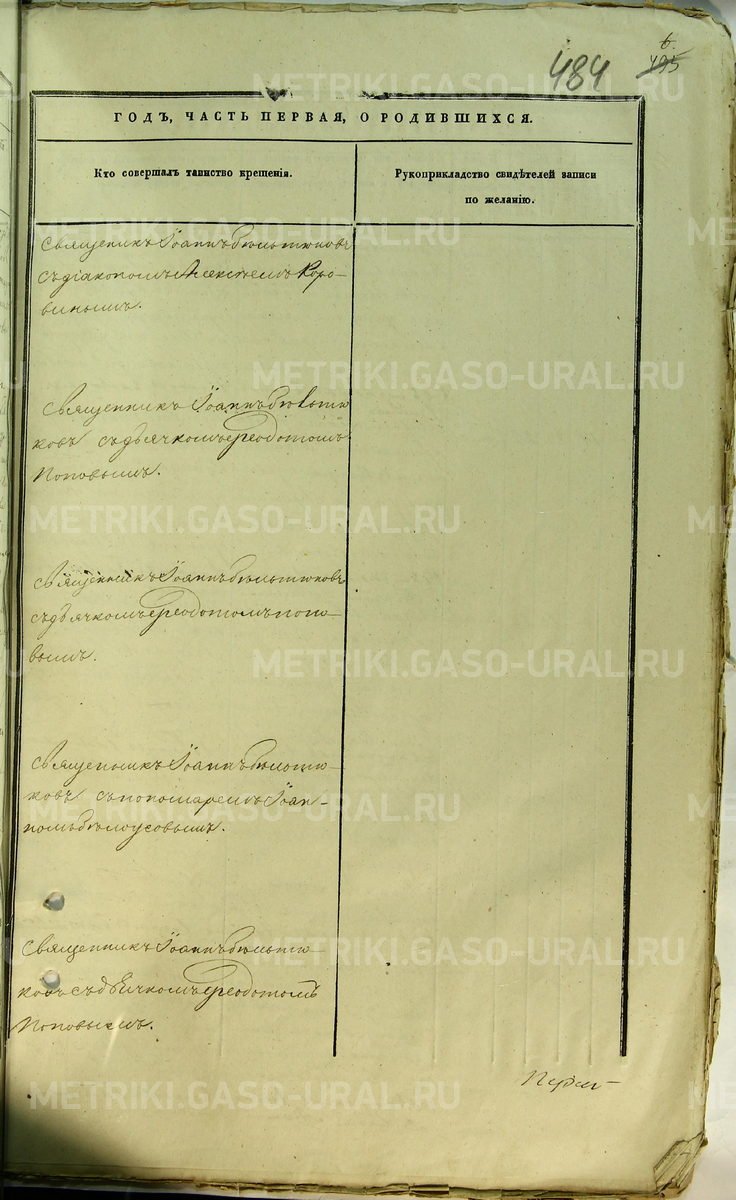 6.
495
484
ГОДЪ, ЧАСТЬ ПЕРВАЯ, О РОДИВШИХСЯ.
Кто совершалъ таинство крещенія.
Рукоприкладство свидѣтелей записи
по желанію.
Священникъ Іоаннъ Бѣльтюковъ
съ діакономъ Алексѣемъ Коро-
винымъ.
Священникъ Іоаннъ Бѣльтю
ковъ съ дьячкомъ Ѳеодотомъ
Поповымъ.
Священникъ Іоаннъ Бѣльтюковъ
съ дьячкомъ Ѳеодотомъ Попо-
вымъ.
Священникъ Іоаннъ Бѣльтю-
ковъ съ пономаремъ Іоан-
номъ Бѣлоусовымъ.
Священникъ Іоаннъ Бѣльтю-
ковъ съ дьячкомъ Ѳеодотомъ
Поповымъ.
METRIKI.GASO-URAL.RU